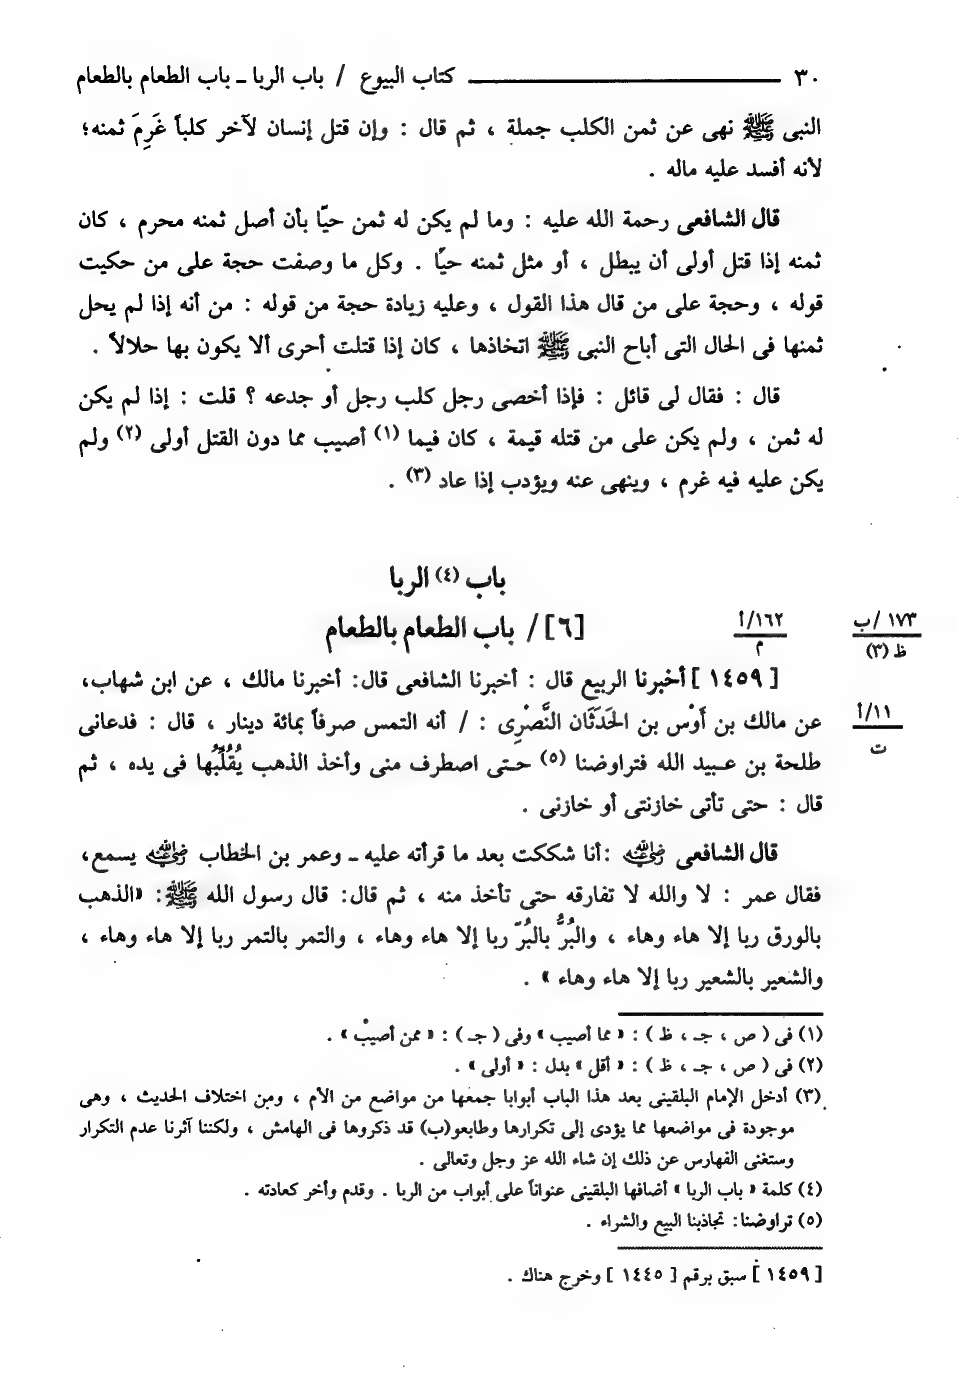 ٣٠ ــــــــــــــــــــ كتاب البيوع / باب الربا ـ باب الطعام بالطعام
النبى ﷺ نهى عن ثمن الكلب جملة ، ثم قال : وإن قتل إنسان لآخر كلباً غَرِمَ ثمنه؛
لأنه أفسد عليه ماله .
قال الشافعى رحمة الله عليه : وما لم يكن له ثمن حيّا بأن أصل ثمنه محرم ، كان
ثمنه إذا قتل أولى أن يبطل ، أو مثل ثمنه حيًا . وكل ما وصفت حجة على من حكيت
قوله ، وحجة على من قال هذا القول ، وعليه زيادة حجة من قوله : من أنه إذا لم يحل
ثمنها فى الحال التى أباح النبى ﷺ اتخاذها ، كان إذا قتلت أحرى ألا يكون بها حلالاً .
قال : فقال لى قائل : فإذا أخصى رجل كلب رجل أو جدعه ؟ قلت : إذا لم يكن
له ثمن ، ولم يكن على من قتله قيمة ، كان فيما (١) أصيب مما دون القتل أولى (٢) ولم
يكن عليه فيه غرم ، وينهى عنه ويؤدب إذا عاد (٣) .
باب (٤) الربا
[٦] / باب الطعام بالطعام
١٦٢/أ
م
١٧٣ /ب
ظ (٣)
[ ١٤٥٩ ] أخبرنا الربيع قال : أخبرنا الشافعى قال: أخبرنا مالك ، عن ابن شهاب،
عن مالك بن أَوْس بن الحَدَثَان النَّصْرِى : / أنه التمس صرفاً بمائة دينار ، قال : فدعانى
١١/أ
ت
طلحة بن عبيد الله فتراوضنا (٥) حتى اصطرف منى وأخذ الذهب يُقُلِّبُها فى يده ، ثم
قال : حتى تأتى خازنتى أو خازنى .
قال الشافعى رضي الله عنه :أنا شككت بعد ما قرأته عليه ـ وعمر بن الخطاب رضي الله عنه يسمع،
فقال عمر : لا والله لا تفارقه حتى تأخذ منه ، ثم قال: قال رسول الله ﷺ: «الذهب
بالورق ربا إلا هاء وهاء ، والبُرُّ بالبُرّ ربا إلا هاء وهاء ، والتمر بالتمر ربا إلا هاء وهاء ،
والشعير بالشعير ربا إلا هاء وهاء » .
(١) فى ( ص ، جـ ، ظ ) : « مما أصيب » وفى ( جـ ) : « ممن أصيب » .
(٢) فى ( ص ، جـ ، ظ ) : « أقل » بدل : « أولى » .
(٣) أدخل الإمام البلقينى بعد هذا الباب أبوابا جمعها من مواضع من الأم ، ومن اختلاف الحديث ، وهى
موجودة فى مواضعها مما يؤدى إلى تكرارها وطابعو(ب) قد ذكروها فى الهامش ، ولكننا آثرنا عدم التكرار
وستغنى الفهارس عن ذلك إن شاء الله عز وجل وتعالى .
(٤) كلمة « باب الربا » أضافها البلقينى عنواناً على أبواب من الربا . وقدم وأخر كعادته .
(٥) تراوضنا: تجاذبنا البيع والشراء .
[ ١٤٥٩ ] سبق برقم [ ١٤٤٥ ] وخرج هناك .